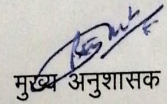 मुख्य अनुशासक